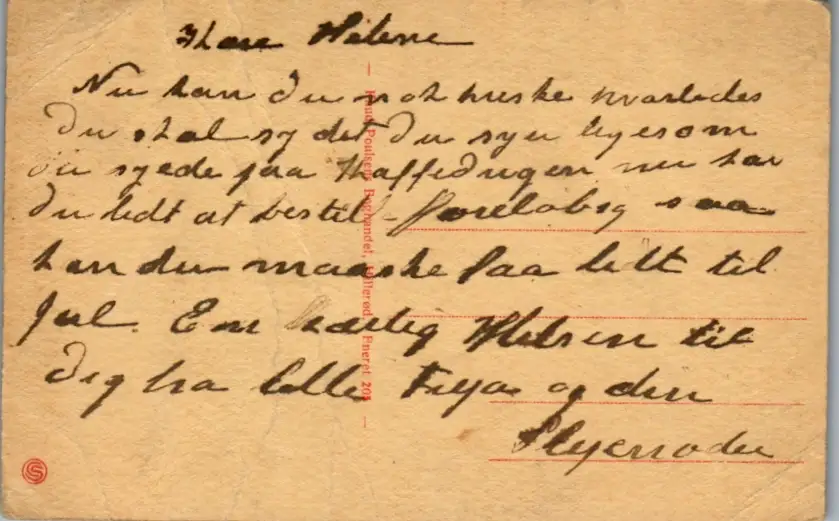 Kære Helene
Nu kan du nok huske hvorledes
du skal sy det du syr ligesom
du syede paa Kaffedugen nu har
du lidt at bestille foreløbig saa
kan du maaske faa lidt til
Jul. En kærlig Hilsen til
dig fra lille Freja og din
Plejemoder
Knud Poulsens Boghandel, Hillerød. Eneret 20
S